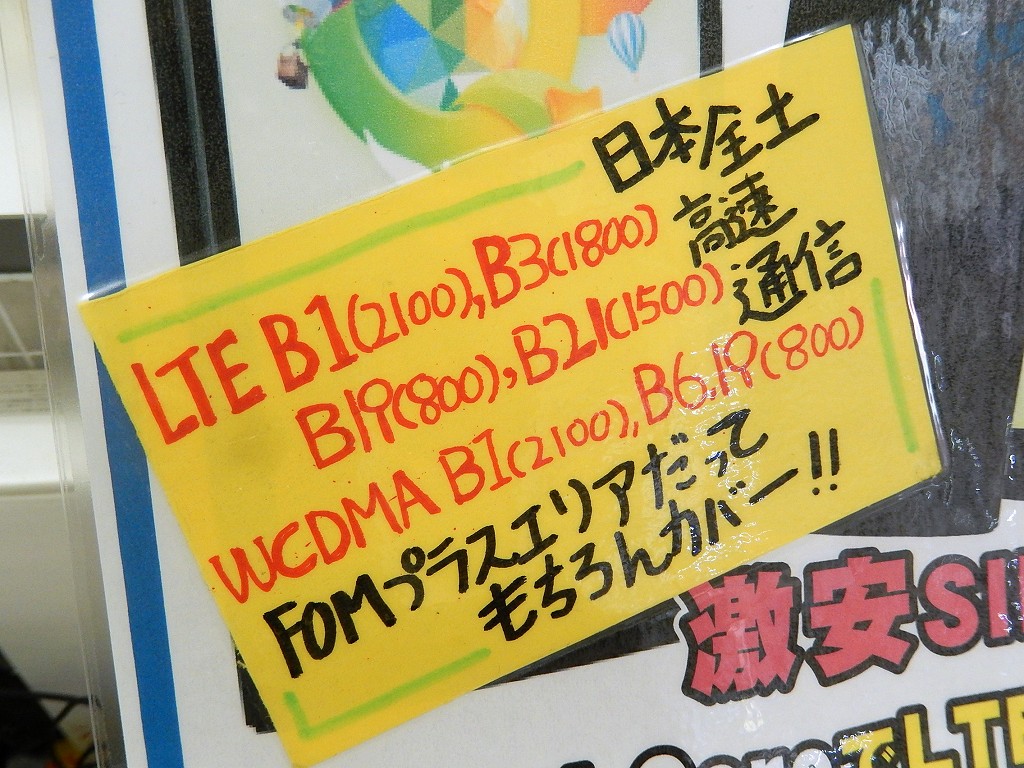 日本全土
高速
通信
LTE B1(2100), B3(1800)
B19(800), B21(1500)
WCDMA B1(2100), B6,19(800)
FOMプラスエリアだって
もちろんカバー!!
激安SI
でLTE